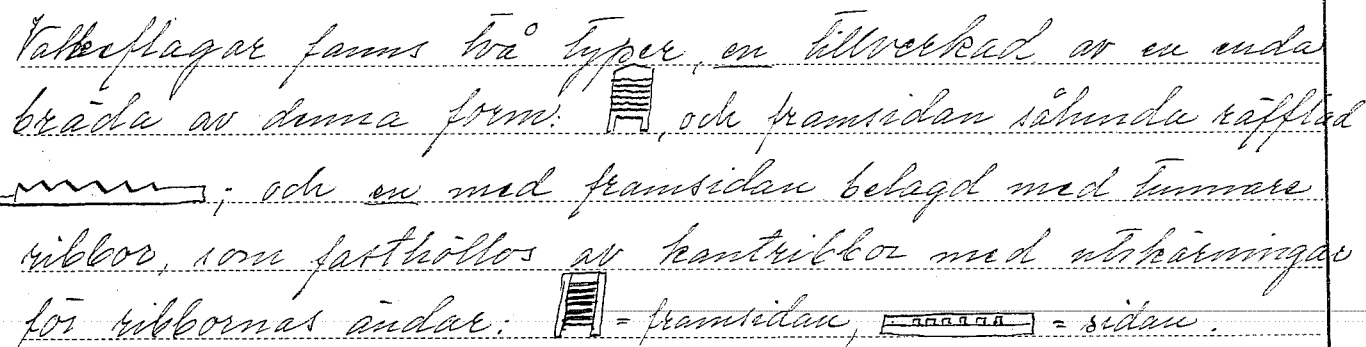 fanns två typer, en tillverkad av en enda
bräda av denna form: , och framsidan sålunda räfflad
; och en med framsidan belagd med tunnare
ribbor, som fasthöllos av kantribbor med utskärningar
för ribbornas ändar: = framsidan, = sidan.